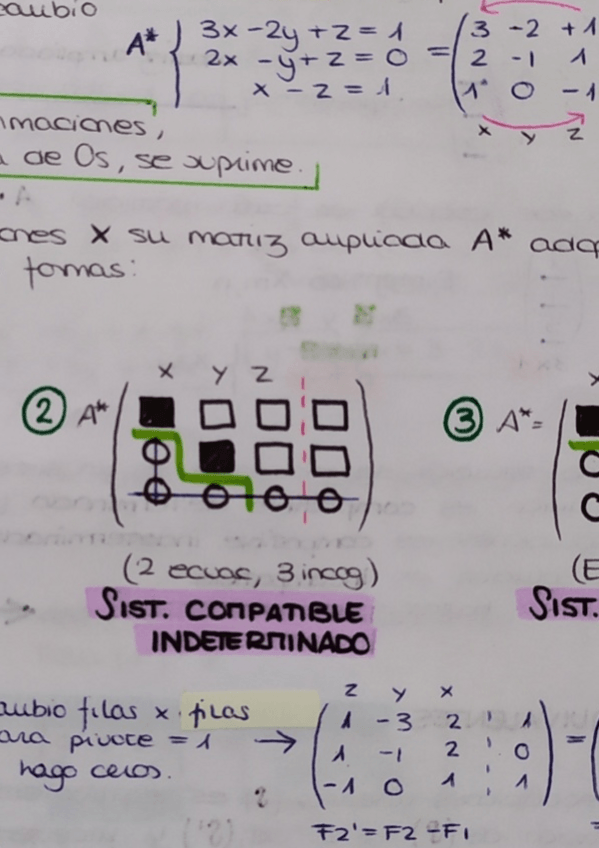 A* { 3x - 2y + z = 1
2x - y + z = 0
x - z = 1
= ( 3 -2 +1
2 -1 1
1 0 -1
x y z
de 0s, se suprime.
x su matriz ampliada A*
formas:
② A*
x y z
(2 ecuac, 3 incog)
SIST. COMPATIBLE
INDETERMINADO
③ A* =
SIST.
filas x filas
pivote = 1 →
hago ceros.
z y x
1 -3 2 ¦ 1
1 -1 2 ¦ 0
-1 0 1 ¦ 1
=
F2' = F2 - F1